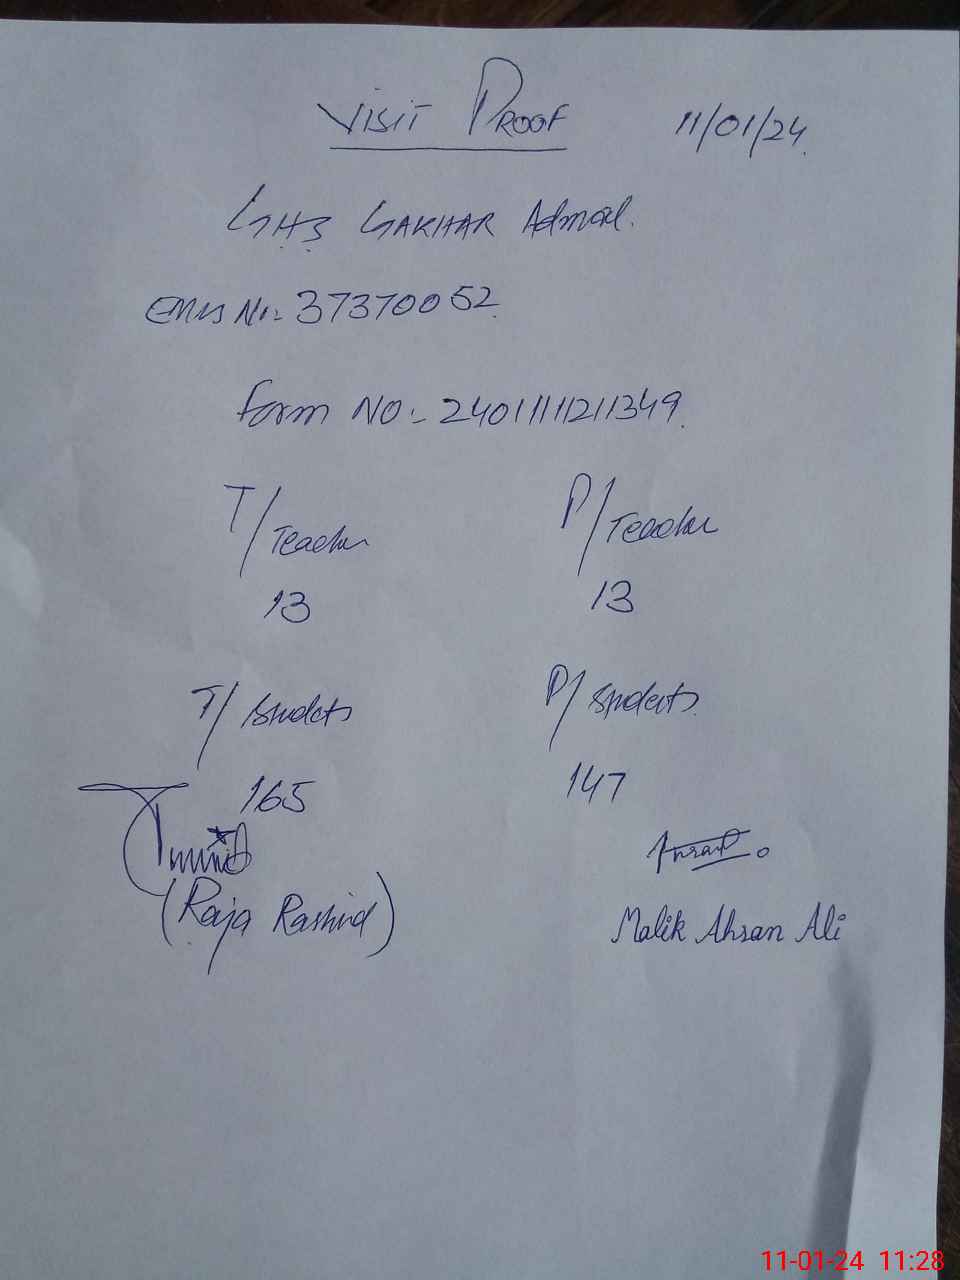 VISIT PROOF 11/01/24
GHS GAKHAR Admal.
EMIS No:- 37370052
Form NO:- 2401111211349
T/Teacher P/Teacher
13 13
T/Students P/Students
165 147
(Raja Rashid)
Malik Ahsan Ali
11-01-24 11:28